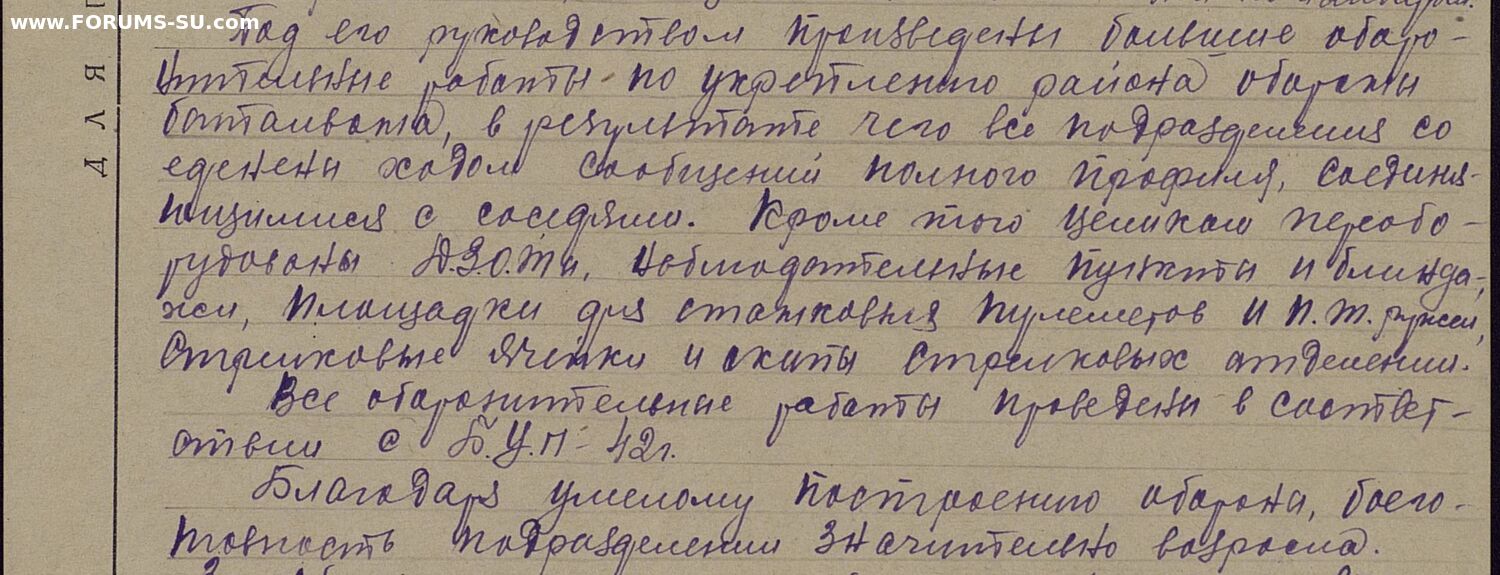 www.FORUMS-SU.com
ДЛЯ
Под его руководством произведены большие оборо-
нительные работы по укреплению района обороны
батальона, в результате чего все подразделения со
еденены ходом сообщений полного профиля, соединя-
ющимися с соседями. Кроме того целиком переобо-
рудованы Д.З.О.Ты, наблюдательные пункты и блинда-
жи, площадки для станковых пулеметов и П.Т. ружей,
Стрелковые ячейки и окопы стрелковых отделений.
Все оборонительные работы проведены в соответ-
ствии с Б.У.П-42г.
Благодаря умелому построению обороны, боего-
товность подразделений значительно возросла.